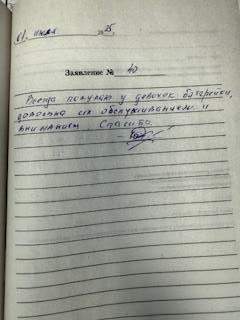 01. июля 2025.
Заявление № 40
Всегда покупаю у девочек батарейки,
довольна их обслуживанием и
вниманием. Спасибо.